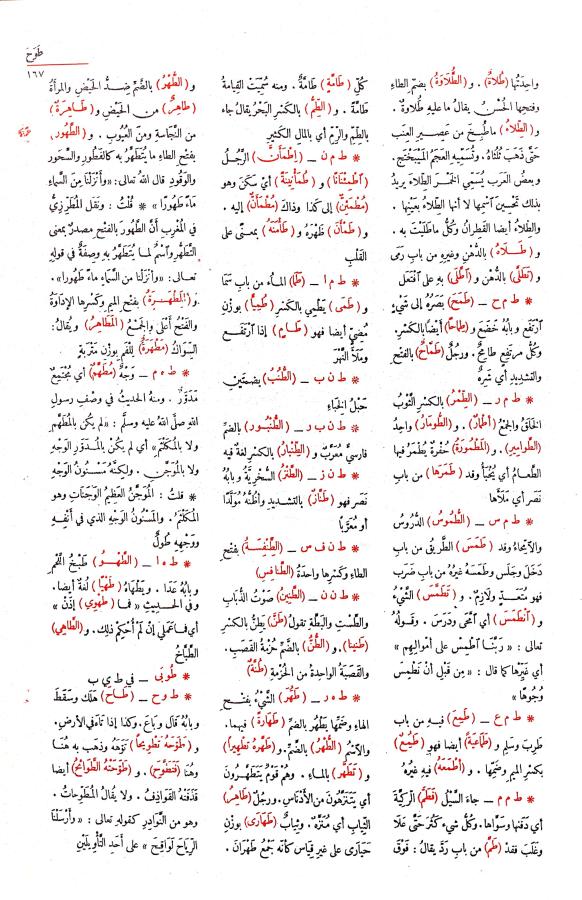 طَوَحَ
١٦٧
واحِدَتُها (طُلاةٌ) . و (الطُّلَاوَةُ) بضم الطاءِ
وفتحها الحُسْنُ يقالُ ما عليهِ طُلاوةٌ .
و (الطِّلاءُ) ما طُبِخَ من عَصيرِ العِنَبِ
حتَّى ذَهَبَ ثُلُثاهُ . وتُسَمِّيهِ العجَمُ المَيْبَخْتَج .
وبعضُ العَرَبِ يُسَمِّي الخَمْرَ الطِّلاءَ يريدُ
بذلك تحْسِينَ اسْمِها لا أنها الطِّلاءُ بِعَيْنِها .
والطِّلاءُ أيضا القَطِرانُ وكلُّ ما طَلَيْتَ به .
و (طَلَاهُ) بالدُّهْنِ وغيرِهِ من بابِ رَمَى
و (تَطَلَّى) بالدُّهْنِ و (اطَّلَى) به على افْتَعَل
* ط م ح – (طَمَحَ) بَصَرُهُ إلى شَيءٍ
ارْتَفَع وبابُهُ خَضَعَ و (طِمَاحًا) أيضًا بالكسْرِ .
وكلُّ مرتفِعٍ طامِحٌ . ورجُلٌ (طَمَّاحٌ) بالفتحِ
والتشديدِ أي شَرِهٌ
* ط م ر – (الطِّمْرُ) بالكسْرِ الثَّوْبُ
الخَلَقُ والجَمْعُ (أطْمَارٌ) . و (الطُّومَارُ) واحِدُ
(الطَّوامِيرِ) . و (المَطْمُورَةُ) حُفْرةٌ يُطْمَرُ فيها
الطَّعامُ أي يُخْبَأُ وقد (طَمَرَها) من بابِ
نَصَر أي مَلَأَها
* ط م س – (الطُّمُوسُ) الدُّرُوسُ
والاِنْمِحاءُ وقد (طَمَسَ) الطَّرِيقُ من بابِ
دَخَلَ وجَلَس وطَمَسَهُ غيرُهُ من بابِ ضَرَب
فهو مُتَعَدٍّ ولازِمٌ . و (تَطَمَّسَ) الشَّيْءُ
و (انْطَمَسَ) أي امَّحَى ودَرَسَ . وقَـوْلُهُ
تعالى : « رَبَّنَا اطْمِسْ على أَمْوالِهِم »
أي غَيِّرْها كما قال : « مِن قَبْلِ أَن نَطْمِسَ
وُجُوهًا »
* ط م ع – (طَمِعَ) فيه من بابِ
طَرِبَ وسَلِمَ و (طَمَاعِيَةً) أيضا فهو (طَمِعٌ)
بكسرِ الميمِ وضَمِّها . و (أَطْمَعَهُ) فيه غيرُهُ
* ط م م – جاءَ السَّيْلُ (فَطَمَّ) الرَّكِيَّةَ
أي دفَنَها وسَوَّاها . وكلُّ شيءٍ كَثُرَ حتَّى عَلَا
وغَلَبَ فقدْ (طَمَّ) من بابِ رَدَّ يقالُ : فَوْقَ
كلِّ (طَامَّةٍ) طَامَّةٌ . ومنه سُمِّيَتِ القِيامَةُ
طَامَّةً . و (الطِّمُّ) بالكَسْرِ البَحْرُ يقالُ جاءَ
بالطِّمِّ والرِّمِّ أي بالمالِ الكَثِيرِ
* ط م ن – (اطْمَأَنَّ) الرَّجُلُ
(اطْمِئْنَانًا) و (طُمَأْنِينَةً) أي سَكَنَ وهو
(مُطْمَئِنٌّ) إلى كذا وذاكَ (مُطْمَأَنٌّ) إليه .
و (طَمْأَنَ) ظَهْرَهُ و (طَأْمَنَهُ) بمعنًى على
القَلْبِ
* ط م ا – (طَمَا) الماءُ من بابِ سَمَا
و (طَمَى) يَطْمِي بالكسْرِ (طُمِيًّا) بوزْنِ
مُضِيٍّ أيضا فهو (طَامٍ) إذا ارْتَفَعَ
ومَلَأَ النَّهرَ
* ط ن ب – (الطُّنُبُ) بضمتينِ
حَبْلُ الخِباءِ
* ط ن ب ر – (الطُّنْبُورُ) بالضَّمِّ
فارِسيٌّ مُعَرَّبٌ و (الطِّنْبارُ) بالكسْرِ لغةٌ فيه
* ط ن ز – (الطَّنْزُ) السُّخْرِيَةُ وبابُهُ
نَصَر فهو (طَنَّازٌ) بالتشديدِ وأظُنُّهُ مُوَلَّدًا
أو مُعَرَّبًا
* ط ن ف س – (الطِّنْفِسَةُ) بفتح
الطاءِ وكَسْرِها واحدَةُ (الطَّنَافِسِ)
* ط ن ن – (الطَّنِينُ) صَوْتُ الذُّبابِ
والطَّسْتِ والبَطَّةِ تقولُ (طَنَّ) يَطِنُّ بالكَسْرِ
(طَنِينًا) . و (الطُّنُّ) بالضَّمِّ حُزْمَةُ القَصَبِ .
والقَصَبَةُ الواحِدَةُ من الحُزْمَةِ (طُنَّةٌ)
* ط ه ر – (طَهُرَ) الشَّيْءُ بفتــحِ
الهاءِ وضَمِّها يَطْهُرُ بالضَّمِّ (طَهَارَةً) فيهما .
والاسْمُ (الطُّهْرُ) بالضَّمِّ . و (طَهَّرَهُ تَطْهِيرًا)
و (تَطَهَّرَ) بالماءِ . وهُمْ قَوْمٌ يَتَطَهَّــرُونَ
أي يَتَنَزَّهُونَ من الأَدْناسِ . ورجُلٌ (طاهِرُ)
الثِّيابِ أي مُتَنَزِّهٌ . وثِيابٌ (طَهَارَى) بوزْنِ
حَيَارَى على غيرِ قِياسٍ كأنه جَمْعُ طَهْرانَ .
و (الطُّهْرُ) بالضَّمِّ ضِــدُّ الحَيْضِ والمرأَةُ
(طاهِرٌ) من الحَيْضِ و (طَــاهِرَةٌ)
من النَّجاسَةِ ومنَ العُيُوبِ . و (الطَّهُورُ)
بفتح الطاءِ ما يُتَطَهَّرُ به كالفَطُورِ والسَّحُورِ
والوَقُودِ قال اللهُ تعالى : «وأَنْزَلْنا مِنَ السَّماءِ
ماءً طَهُورًا» * قُلْتُ : ونَقَلَ المُطَرِّزِيُّ
في المُغْرِبِ أنَّ الطَّهُورَ بالفتحِ مصدرٌ بمعنى
التَّطَهُّرِ واسْمٌ لما يُتَطَهَّرُ به وصِفَةٌ في قولِهِ
تعالى : «وأَنْزَلْنا مِنَ السَّماءِ ماءً طَهُورًا» .
و (المَطْهَرَةُ) بفتحِ الميمِ وكسْرِها الإِداوَةُ
والفَتْحُ أَعْلَى والجَمْعُ (المَطَاهِرُ) ويُقالُ :
السِّواكُ (مَطْهَرَةٌ) للْفَمِ بوزنِ مَتْرَبَةٍ
* ط ه م – وَجْهٌ (مُطَهَّمٌ) أي مُجْتَمِعٌ
مُدَوَّرٌ . ومنه الحديثُ في وصْفِ رسولِ
اللهِ صلَّى اللهُ عليه وسلَّم : «لم يكن بالمُطَهَّمِ
ولا بالمُكَلْثَمِ» أي لم يكنْ بالمُــدَوَّرِ الوَجْهِ
ولا بالمُوَجَّنِ . ولكنَّهُ مَسْــنُونُ الوَجْهِ
* قلتُ : المُوَجَّنُ العَظيمُ الوَجَنَاتِ وهو
المُكَلْثَمُ . والمَسْنُونُ الوَجْهِ الذي في أنْفِـهِ
ووَجْهِهِ طُولٌ
* ط ه ا – (الطَّهْــوُ) طَبْخُ اللَّحْمِ
وبابُهُ عَدَا . ويَطْهَاهُ (طَهْيًا) لُغَةٌ أيضا .
وفي الحديثِ « فمــا (طَهْوِي) إذَنْ »
أي فما عَمَلي إنْ لم أُحْكِمْ ذلك . و (الطَّاهِي)
الطَّبَّاخُ
* طُوبَى – في ط ي ب
* ط و ح – (طَــاحَ) هَلَك وسَقَطَ
وبابُهُ قالَ وباعَ . وكذا إذا تاهَ في الأرضِ .
و (طَوَّحَهُ تَطْوِيحًا) تَوَّهَهُ وذهَبَ به هُنَا
وهُنَا (فَتَطَوَّحَ) . و (طَوَّحَتْهُ الطَّوائِحُ) أيضا
قَذَفَتْهُ القَواذِفُ . ولا يُقالُ المُطَوِّحاتُ .
وهو من النَّوادِرِ كقولِهِ تعالى : « وأَرْسَلْنا
الرِّياحَ لَوَاقِحَ » على أَحَدِ التَّأْوِيلَيْنِ